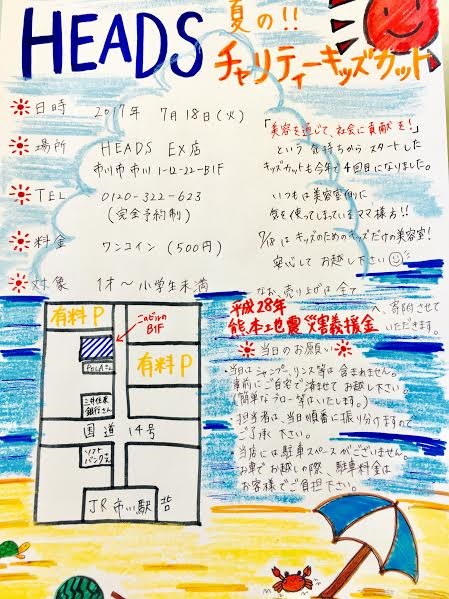 HEADS 夏の!!
チャリティーキッズカット
日時 2017年 7月18日(火)
場所 HEADS EX店
市川市市川1-12-22-B1F
TEL 0120-322-623
(完全予約制)
料金 ワンコイン(500円)
対象 1才〜小学生未満
「美容を通じて、社会に貢献を!」
という気持ちからスタートした
キッズカットも今年で4回目になりました。
いつもは美容室側に
気を使ってしまっているママ様方!!
7/18はキッズのためのキッズだけの美容室!
安心してお越し下さい
なお、売り上げは全て
平成28年
熊本地震災害義援金
へ、寄附させて
いただきます。
当日のお願い
・当日はシャンプー、リンス等は含まれません。
事前にご自宅で済ませてお越し下さい
(簡単なブロー等はいたします。)
・担当者は、当日順番に振り分けますので
ご了承下さい。
・当店には駐車スペースがございません。
お車でお越しの際、駐車料金は
お客様でご負担下さい。
有料P
このビルの
B1F
POLAさん
有料P
三井住友
銀行さん
国道14号
ソフト
バンクさん
JR市川駅